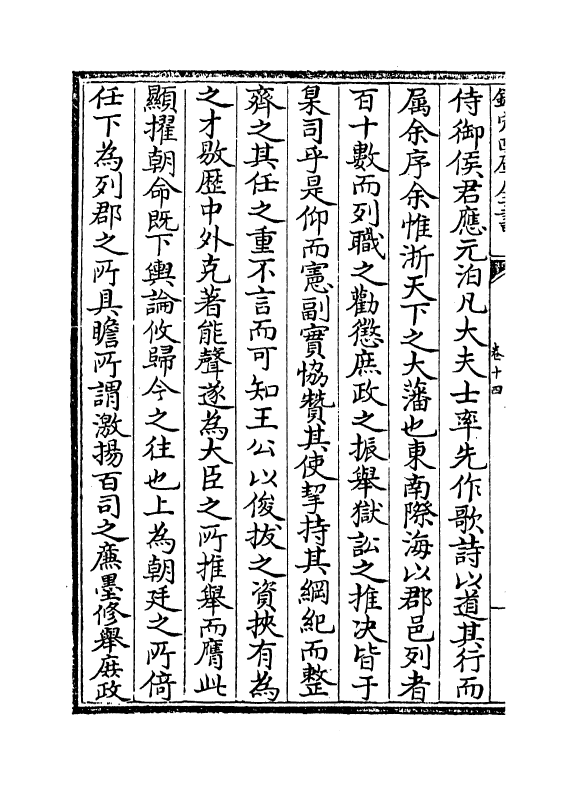 欽定四庫全書
卷十四
侍御侯君應元洎凡大夫士率先作歌詩以道其行而
属余序余惟浙天下之大藩也東南際海以郡邑列者
百十數而列職之勸懲庶政之振舉獄訟之推决皆于
臬司乎是仰而憲副實協贊其使挈持其綱紀而整
齊之其任之重不言而可知王公以俊拔之資挾有為
之才敭歴中外克著能聲遂為大臣之所推舉而膺此
顯擢朝命既下輿論攸歸今之往也上為朝廷之所倚
任下為列郡之所具瞻所謂激揚百司之亷墨修舉庶政